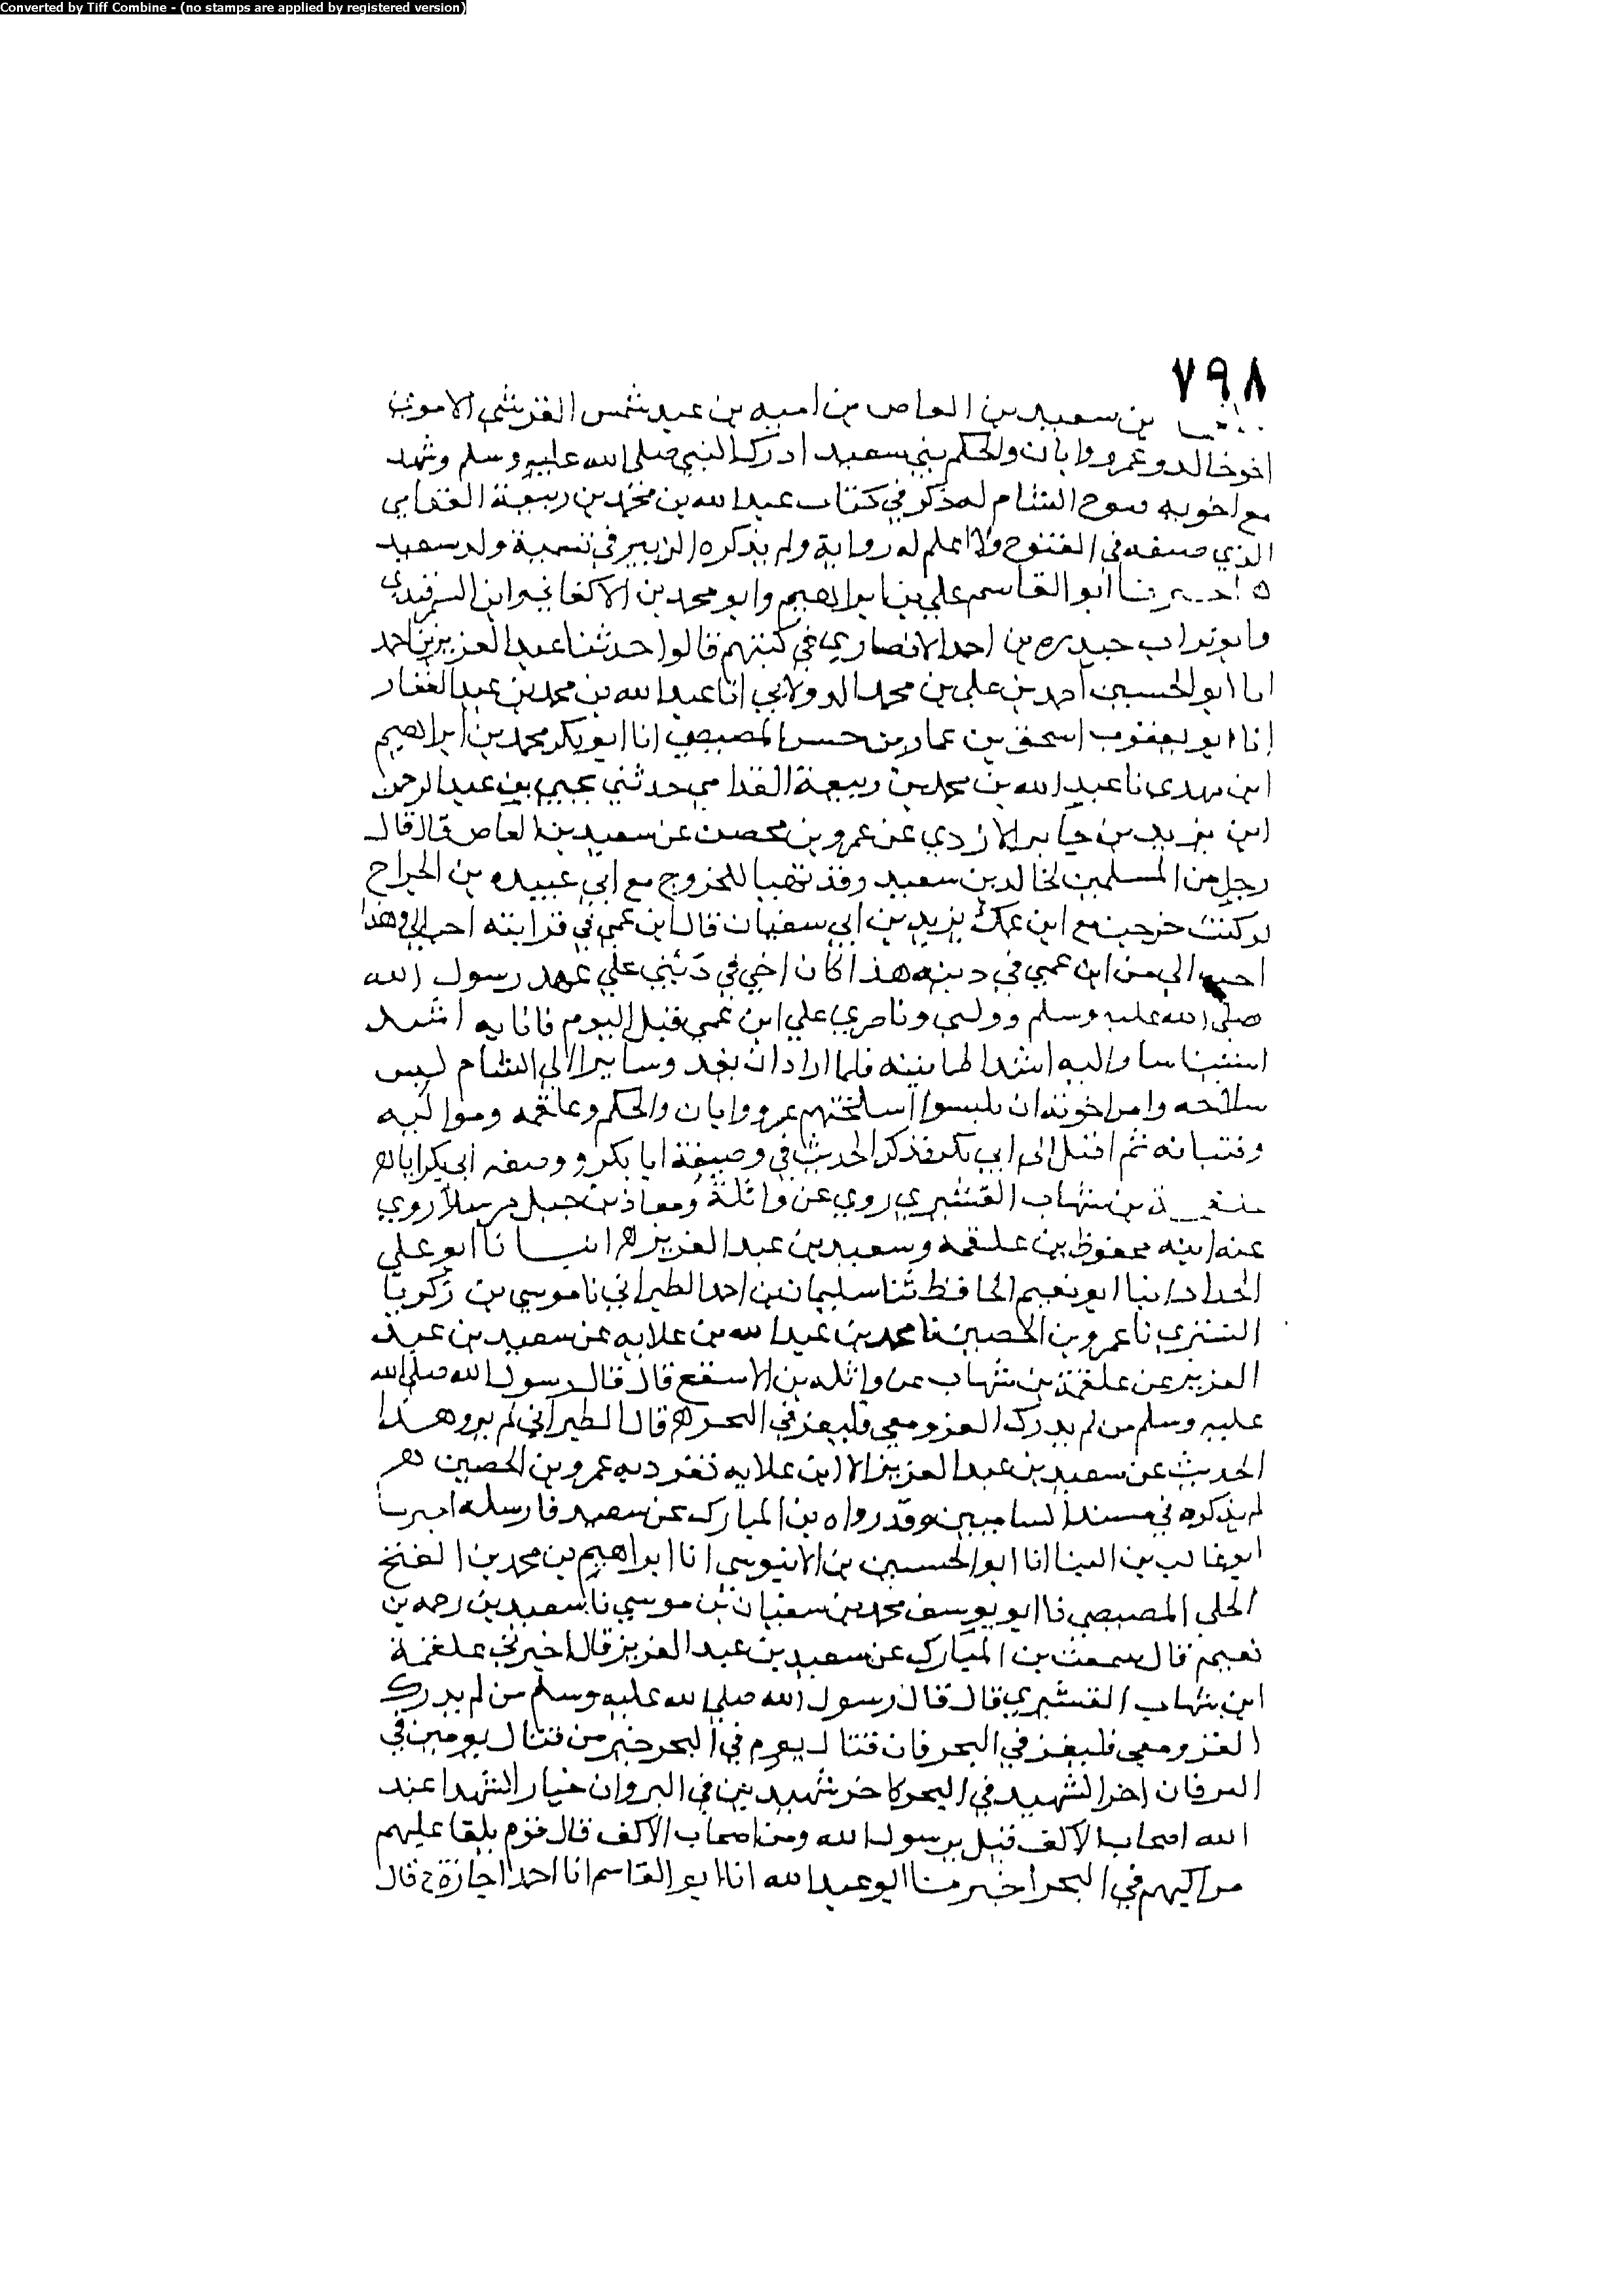 Converted by Tiff Combine - (no stamps are applied by registered version)
٧٩٨
بن سعيد بن العاص بن اميه بن عبد شمس القرشي الاموي
اخو خالد وعمرو وابان والحكم بني سعيد ادرك النبي صلى الله عليه وسلم وشهد
مع اخويه فتوح الشام له ذكر في كتاب عبد الله بن محمد بن ربيعة القدامي
الذي صنفه في الفتوح ولا اعلم له رواية ولم يذكره الزبير في تسمية ولد سعيد
ه اخبرنا ابو القاسم علي بن ابراهيم وابو محمد بن الاكفاني وابن السمرقندي
وابو تراب حيدره بن احمد الانصاري في كتبهم قالوا حدثنا عبد العزيز بن احمد
انا ابو الحسين احمد بن علي بن محمد الدولابي انا عبد الله بن محمد بن عبد الغفار
انا ابو يعقوب اسحق بن عمار بن حسن المصيصي انا ابو بكر محمد بن ابراهيم
ابن مهدي نا عبد الله بن محمد بن ربيعة القدامي حدثني يحيي بن عبد الرحمن
ابن يزيد بن جابر الازدي عن عمرو بن محصن عن سعيد بن العاص قال قال
رجل من المسلمين لخالد بن سعيد وقد تهيا للخروج مع ابي عبيده بن الجراح
لو كنت خرجت مع ابن عمك يزيد بن ابي سفيان قال ابن عمي في قرابته احب الي وهذا
احب الي من ابن عمي في دينه هذا كان اخي في ديني علي عهد رسول الله
صلى الله عليه وسلم وولي وناصري علي ابن عمي قبل اليوم فانا به اشد
استيناسا واليه اشد طمانينه فلما اراد ان يغد وسايرا الي الشام لبس
سلاحه وامر اخوته ان يلبسوا اسلحتهم عمرو وابان والحكم وعلقمه ومواليه
وفتيانه ثم اقبل الى ابي بكر فذكر الحديث في وصيته ابا بكر ووصفه ابي بكر اياه
علقمة بن شهاب القشيري روي عن واثلة ومعاذ بن جبل مرسلا روي
عنه ابنه محفوظ بن علقمه وسعيد بن عبد العزيز ه انبانا ابو علي
الحداد انبا ابو نعيم الحافظ ثنا سليمان بن احمد الطبراني نا موسي بن زكريا
التستري نا عمرو بن الحصين نا محمد بن عبد الله بن علاثه عن سعيد بن عبد
العزيز عن علقمة بن شهاب عن واثله بن الاسقع قال قال رسول الله صلي الله
عليه وسلم من لم يدرك الغزو معي فليغز في البحر ه قال الطبراني لم يرو هذا
الحديث عن سعيد بن عبد العزيز الا ابن علاثه تفرد به عمرو بن الحصين ه
لم يذكره في مسند الشاميين وقد رواه بن المبارك عن سعيد فارسله اخبرنا
ابو غالب بن البنا انا ابو الحسين بن الابنوسي انا ابراهيم بن محمد بن الفتح
الجلي المصيصي نا ابو يوسف محمد بن سفيان بن موسي نا سعيد بن رحمه بن
نعيم قال سمعت بن المبارك عن سعيد بن عبد العزيز قال اخبرني علقمة
ابن شهاب القشيري قال قال رسول الله صلي الله عليه وسلم من لم يدرك
الغزو معي فليغز في البحر فان قتال يوم في البحر خير من قتال يومين في
البر وان اجر الشهيد في البحر كاجر شهيدين في البر وان خيار الشهدا عند
الله اصحاب الاكف قيل يرسول الله ومن اصحاب الاكف قال قوم يلقا عليهم
مراكبهم في البحر اخبرنا ابو عبد الله انا ابو القاسم انا احمد اجازة ح قال